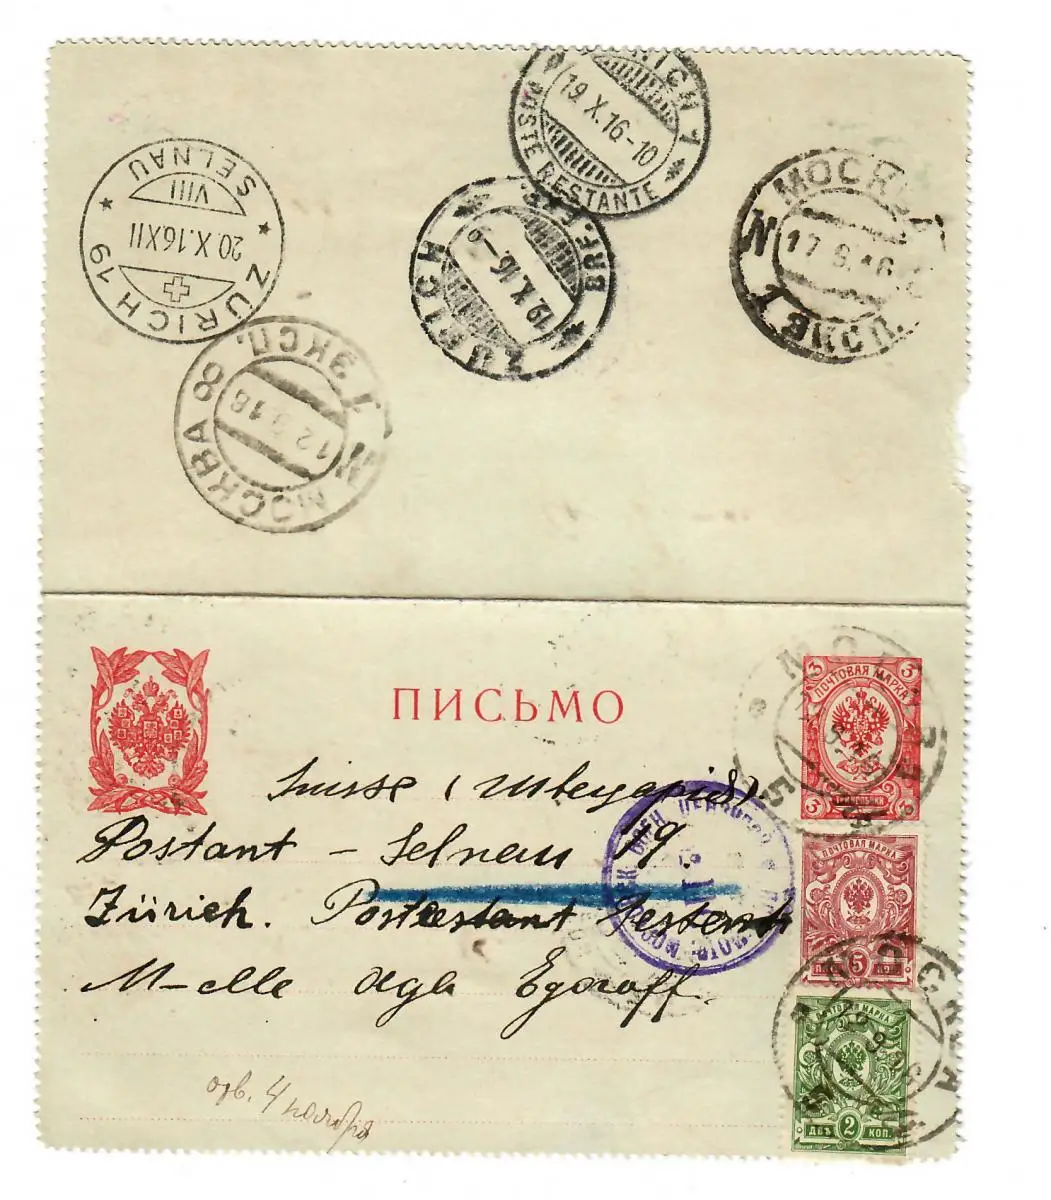 ZÜRICH 1
19.X.16-10
POSTE RESTANTE
ZÜRICH 19
20.X.16XII
VIII
SELNAU
ZÜRICH
19.X.16-9
BRF.
МОСКВА
17.9.16
ЭКСП.
МОСКВА 8
12.9.16
I ЭКСП.
ПИСЬМО
3 3
ПОЧТОВАЯ МАРКА
3 3
МОСКВА
5
Suisse (Швейцарія)
Postant - Selnau 19.
Zürich.
M-elle Olga Egoroff.
ПОЧТОВАЯ МАРКА
5
МОСКВА
ПОЧТОВАЯ МАРКА
ДВѢ 2 КОП.
отв. 4 ноября